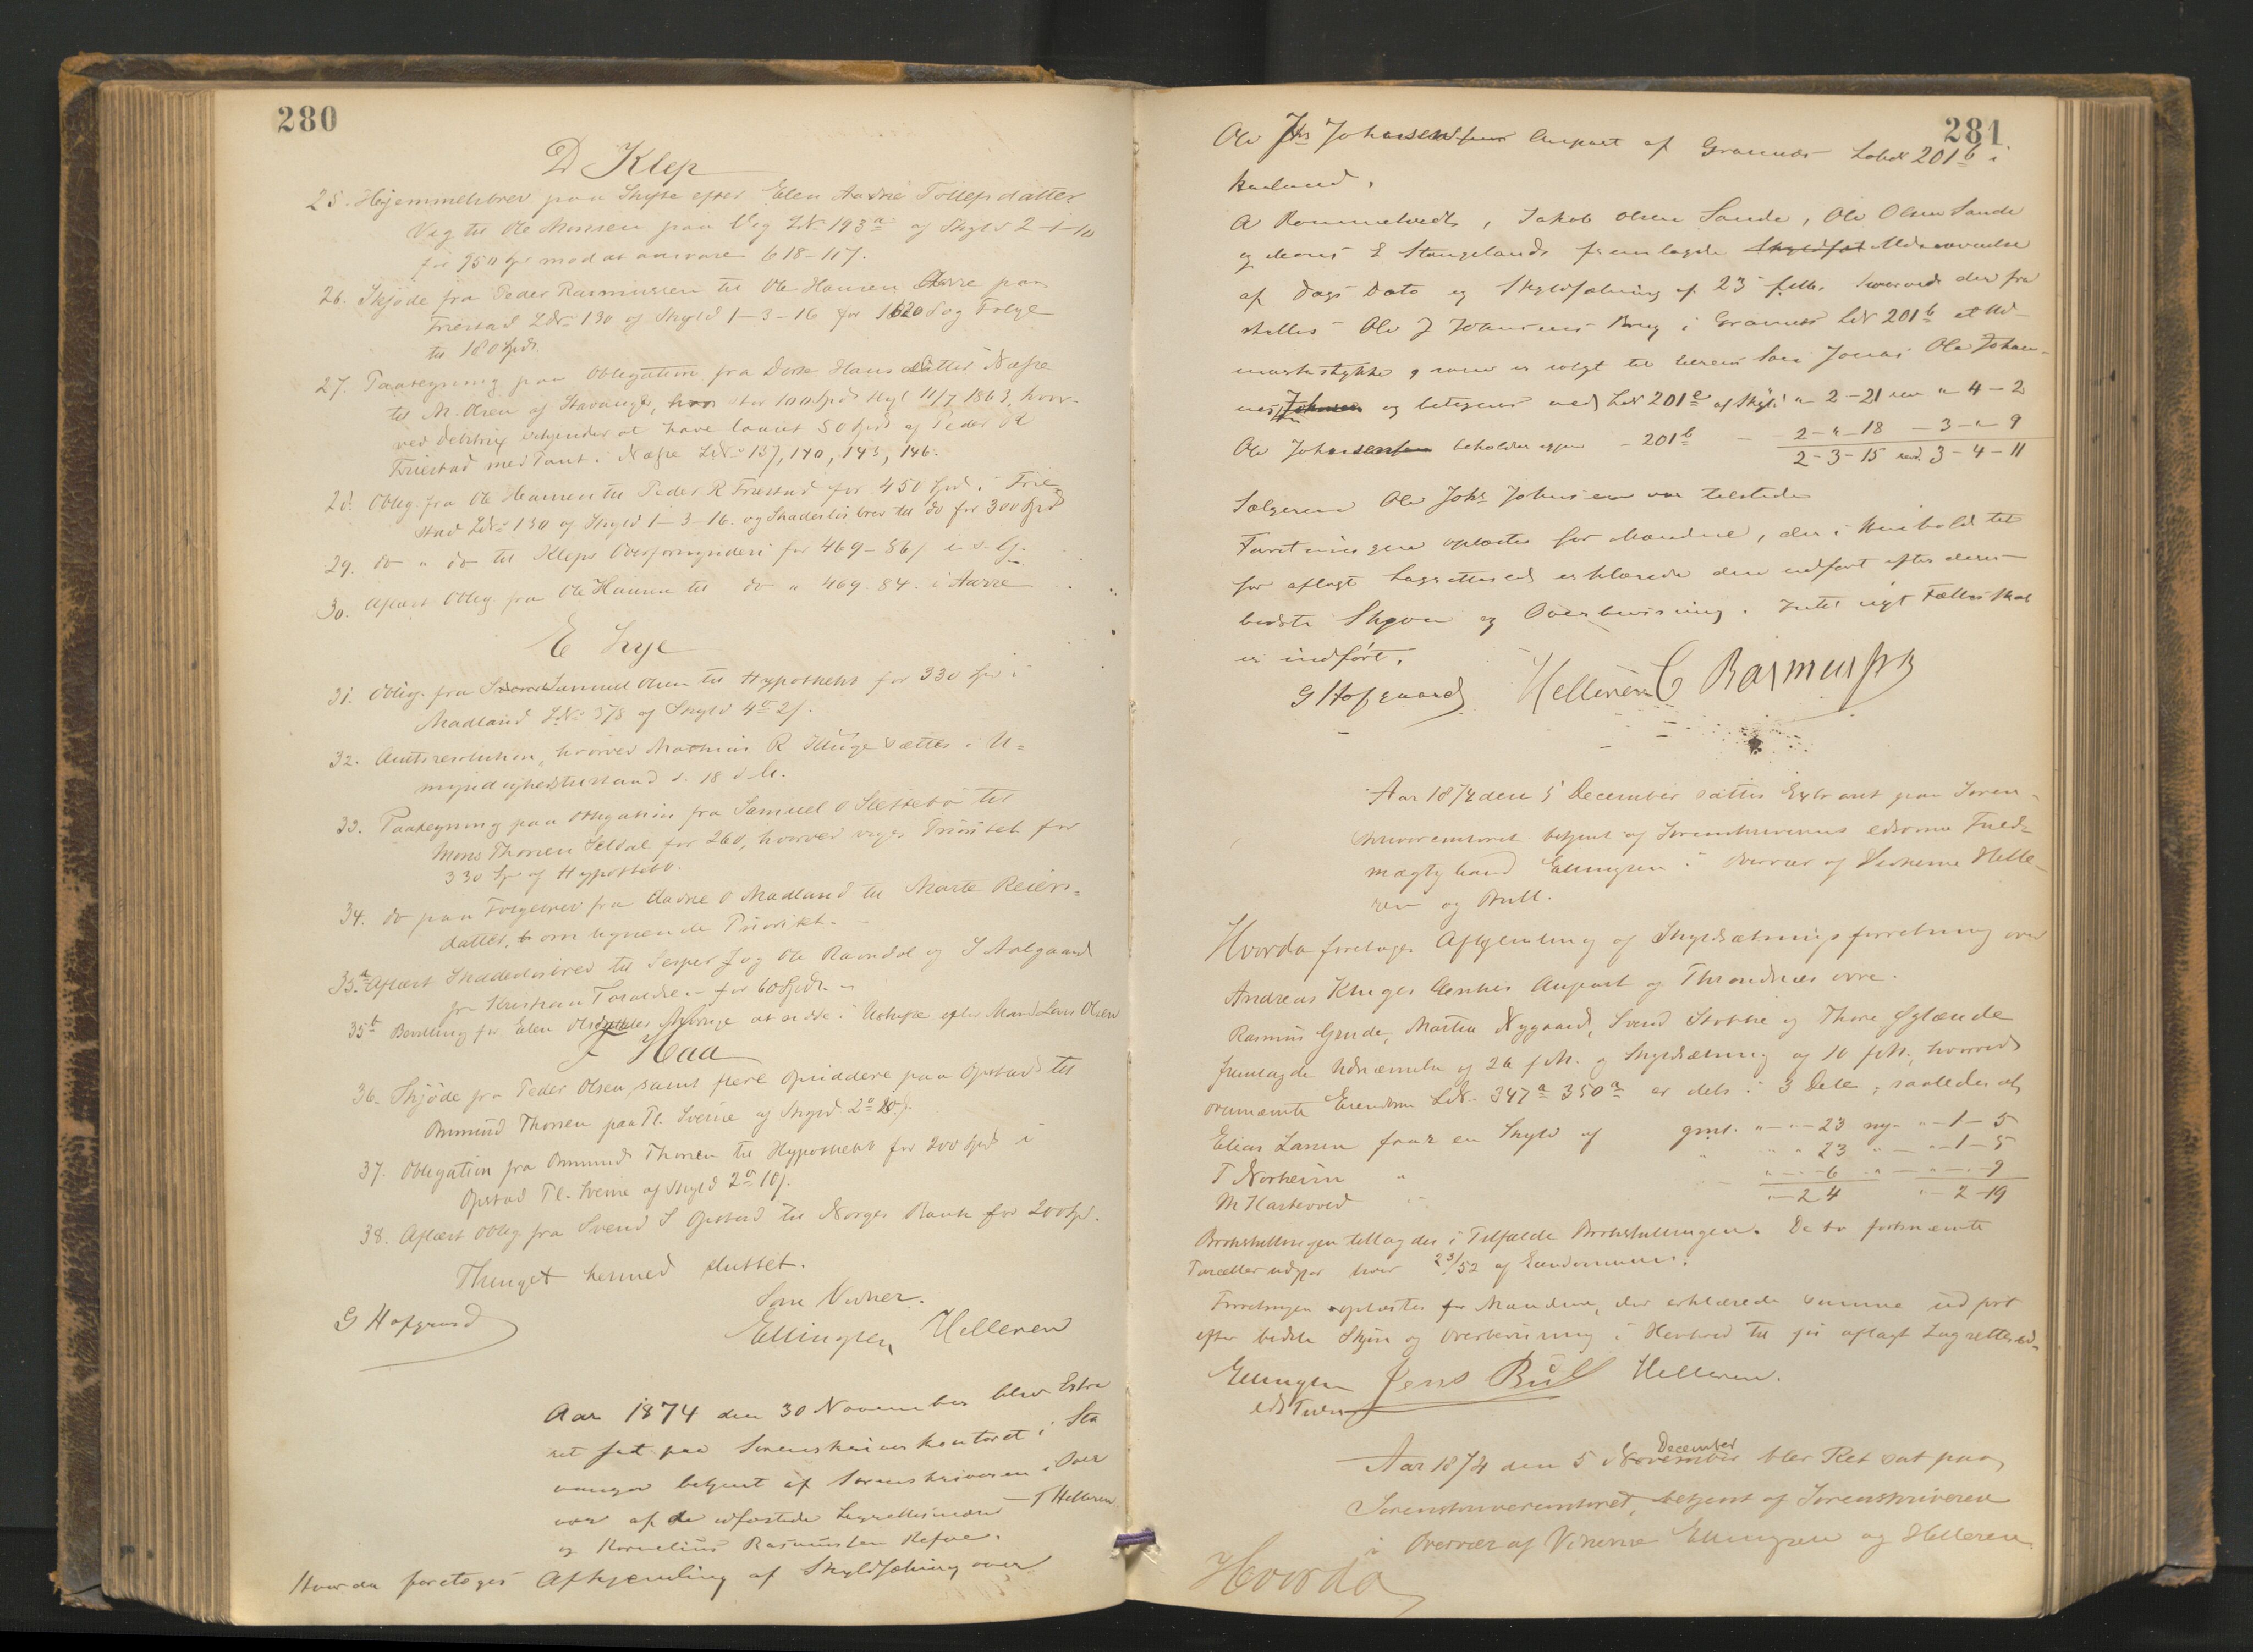 280
D Klep
25. Hjemmelsbrev paa Skifte efter Elen Aadne Tollepsdatter
Vig til Ole Monsen paa Vig LNo 193a af Skyld 2-1-10
for 950 Spd mod at ansvare 618-117.
26. Skjöde fra Peder Rasmussen til Ole Hansen Aarre paa
Friestad LNo 130 af Skyld 1-3-16 for 1620 og Folge
til 180 Spd.
27. Paategning paa Obligation fra Dorte Hansdatter Næsse
til M. Olsen af Stavanger, stor 100 Spd tlgl 11/7 1863, hvor-
ved Debitrix erkjender at have laant 50 Spd af Peder R
Friestad med Pant i Næsse LNo 137, 140, 143, 146.
28. Oblig. fra Ole Hansen til Peder R Friestad for 450 Spd i Frie
stad LNo 130 af Skyld 1-3-16. og Skadeslösbrev til do for 300 Spd
29. do " do til Kleps Overformynderi for 469-86 i s. Gj.
30. Aflæst Oblig. fra Ole Hansen til do " 469. 84. i Aarre
E Lye
31. Oblig. fra Samuel Olsen til Hypothekb for 330 Spd i
Madland LNo 378 af Skyld 4 2.
32. Amtsresolution, hvorved Mathias R sættes i U=
myndighedstilstand d. 18 d. M.
33. Paategning paa Obligation fra Samuel O Slettebö til
Mons Thorsen Seldal for 260, hvorved viges Prioritet for
330 Sp af Hypothkb.
34. do paa Folgebrev fra Aadne O Madland til Marte Reiers=
datter, om lignende Prioritet.
35.a Aflæst Skadeslösbrev til Jesper J og Ole Ravndal og S Aalgaard
fra Kristian Toraldsen for 60 Spd.
35b Bevilling for Elen Olsdatter at sidde i Uskifte efter Mand Lars Olsen
F Haa
36. Skjöde fra Peder Olsen samt flere Opsiddere paa Opstad til
Ommund Thorsen paa Pl. Sveine af Skyld 2
37. Obligation fra Ommund Thorsen til Hypothekb for 200 Spd i
Opstad Pl. Sveine af Skyld 2 10.
38. Aflæst Oblig fra Svend S Opstad til Norges Bank for 200 Sp.
Thinget hermed sluttet.
Som Vidner.
G Hofgaard Ellingsen Helleren
Aar 1874 den 30 November blev Extra
ret sat paa Sorenskriverkontoret i Sta
vanger betjent af Sorenskriveren i Over
vær af de edfæstede Lagrettesmænd T Helleren
og Kornelius Rasmussen
Hvorda foretoges Afhjemling af Skyldsætning over
281
Ole Johs Johnsens Anpart af Grannes LNo 201b i
Haaland.
A Rommetvedt, Jakob Olsen Sande, Ole Olsen Sande
og Mons E Stangeland fremlagde Udnævnelse
af Dags Dato og Skyldsætning af 23 hvorved der fra
skilles Ole J Johnsens Brug i Grannes LNo 201b et Ud-
markstykke, som er solgt til Jonas Ole Johan-
nes og betegnes ved LNo 201e af Skyld " 2-21 " 4-2
Ole Johnsen beholder igjen - 201b - 2-"-18 - 3-"-9
2-3-15 3-4-11
Sælgeren Ole Johs Johnsen var tilstede
Forretningen oplæstes for Mændene, der i Henhold til
för aflagt Lagrettesed erklærede den udfört efter deres
bedste Skjön og Overbevisning. Intet nyt Fællesskab
er indfört.
G Hofgaard Helleren C Rasmussen
Aar 1874 den 5 December sattes Extraret paa Soren-
skrivercontoret betjent af Sorenskriverens edsvorne Fuld=
mægtig Ellingsen i Overvær af Vidnerne Helle-
ren og Bull.
Hvorda foretoges Afhjemling af Skyldsætningsforretning over
Andreas Kluges Anpart af Throndnæs övre.
Rasmus Grude, Martin Nygaard, Svend Stokke og Thore Öglænde
fremlagde Udnævnelse af 26 f.M. og Skyldsætning af 10 f.M., hvorved
ovennævnte Eiendom LNo 347a 350a er delt i 3 Dele, saaledes at
Elias Larsen faar en Skyld af gml. "-"-23 ny "-1-5
T Norheim " " " 23 " "-1-5
M Hartevold "-"-6 " "-"-9
"-2 4 "-2-19
tillagdes i Tilfælde . De to förstnævnte
Parceller udgjör hver 23/52 af Eiendommen.
Forretningen oplæstes for Mændene, der erklærede samme udfört
efter bedste Skjön og Overbevisning i Henhold til för aflagt Lagrettesed.
Ellingsen Jens Bull Helleren.
Aar 1874 den 5 November December blev Ret sat paa
Sorenskrivercontoret, betjent af Sorenskriveren
i Overvær af Vidnerne Ellingsen og Helleren
Hvorda